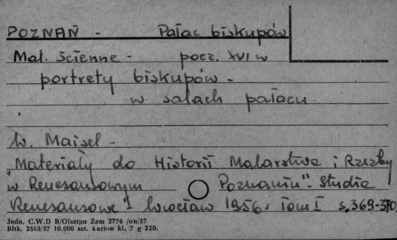 POZNAŃ - Pałac biskupów
Mal. ścienne - pocz. XVI w
portrety biskupów -
w salach pałacu
W. Maisel -
"Materiały do Historii Malarstwa i Rzeźby
w Renesansowym Poznaniu" - Studia
Renesansowe" Wrocław 1956, tom I s. 369-370
Jedn. C.W.D B/Olsztyn Zam 2776 /on/57
Bltk. 2563/57 10.000 szt. karton kl. 7 g 220.